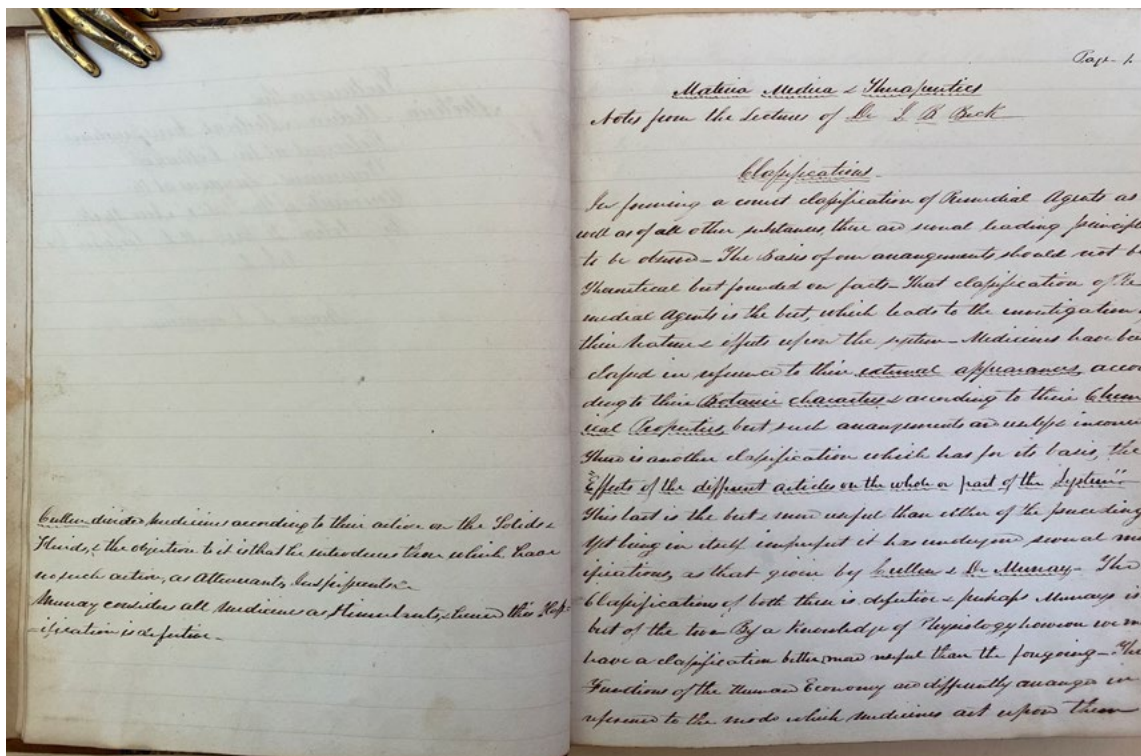 Cullen divides medicines according to their action on the Solids &
Fluids, & the objection to it is that he introduces those which have
no such action, as Attenuants, Inspissants &c
Murray considers all medicines as Stimulants, & hence this Class=
=ification is defective -
Page 1.
Materia Medica & Therapeutics
Notes from the Lectures of Dr J B Beck
Classifications.
In forming a correct classification of Remedial Agents as
well as of all other substances, there are several leading principl
to be observed - The basis of our arrangements should not b
Theoretical but founded on facts - That classification of Re
medial Agents is the best, which leads to the investigation
their nature & effects upon the system - Medicines have be
classed in reference to their external appearances, accor
ding to their Botanic characters & according to their Chem
ical Properties, but such arrangements are useless & inconve
There is another classification which has for its basis, the
"Effects of the different articles on the whole or part of the System"
This last is the best & more useful than either of the preceding
Yet being in itself imperfect it has undergone several mo
ifications, as that given by Cullen & Dr Murray - The
Classifications of both these is defective & perhaps Murrays is
best of the two - By a Knowledge of Physiology however we m
have a classification better, more useful than the foregoing - The
Functions of the Human Economy are differently arranged in
reference to the mode which medicines act upon them